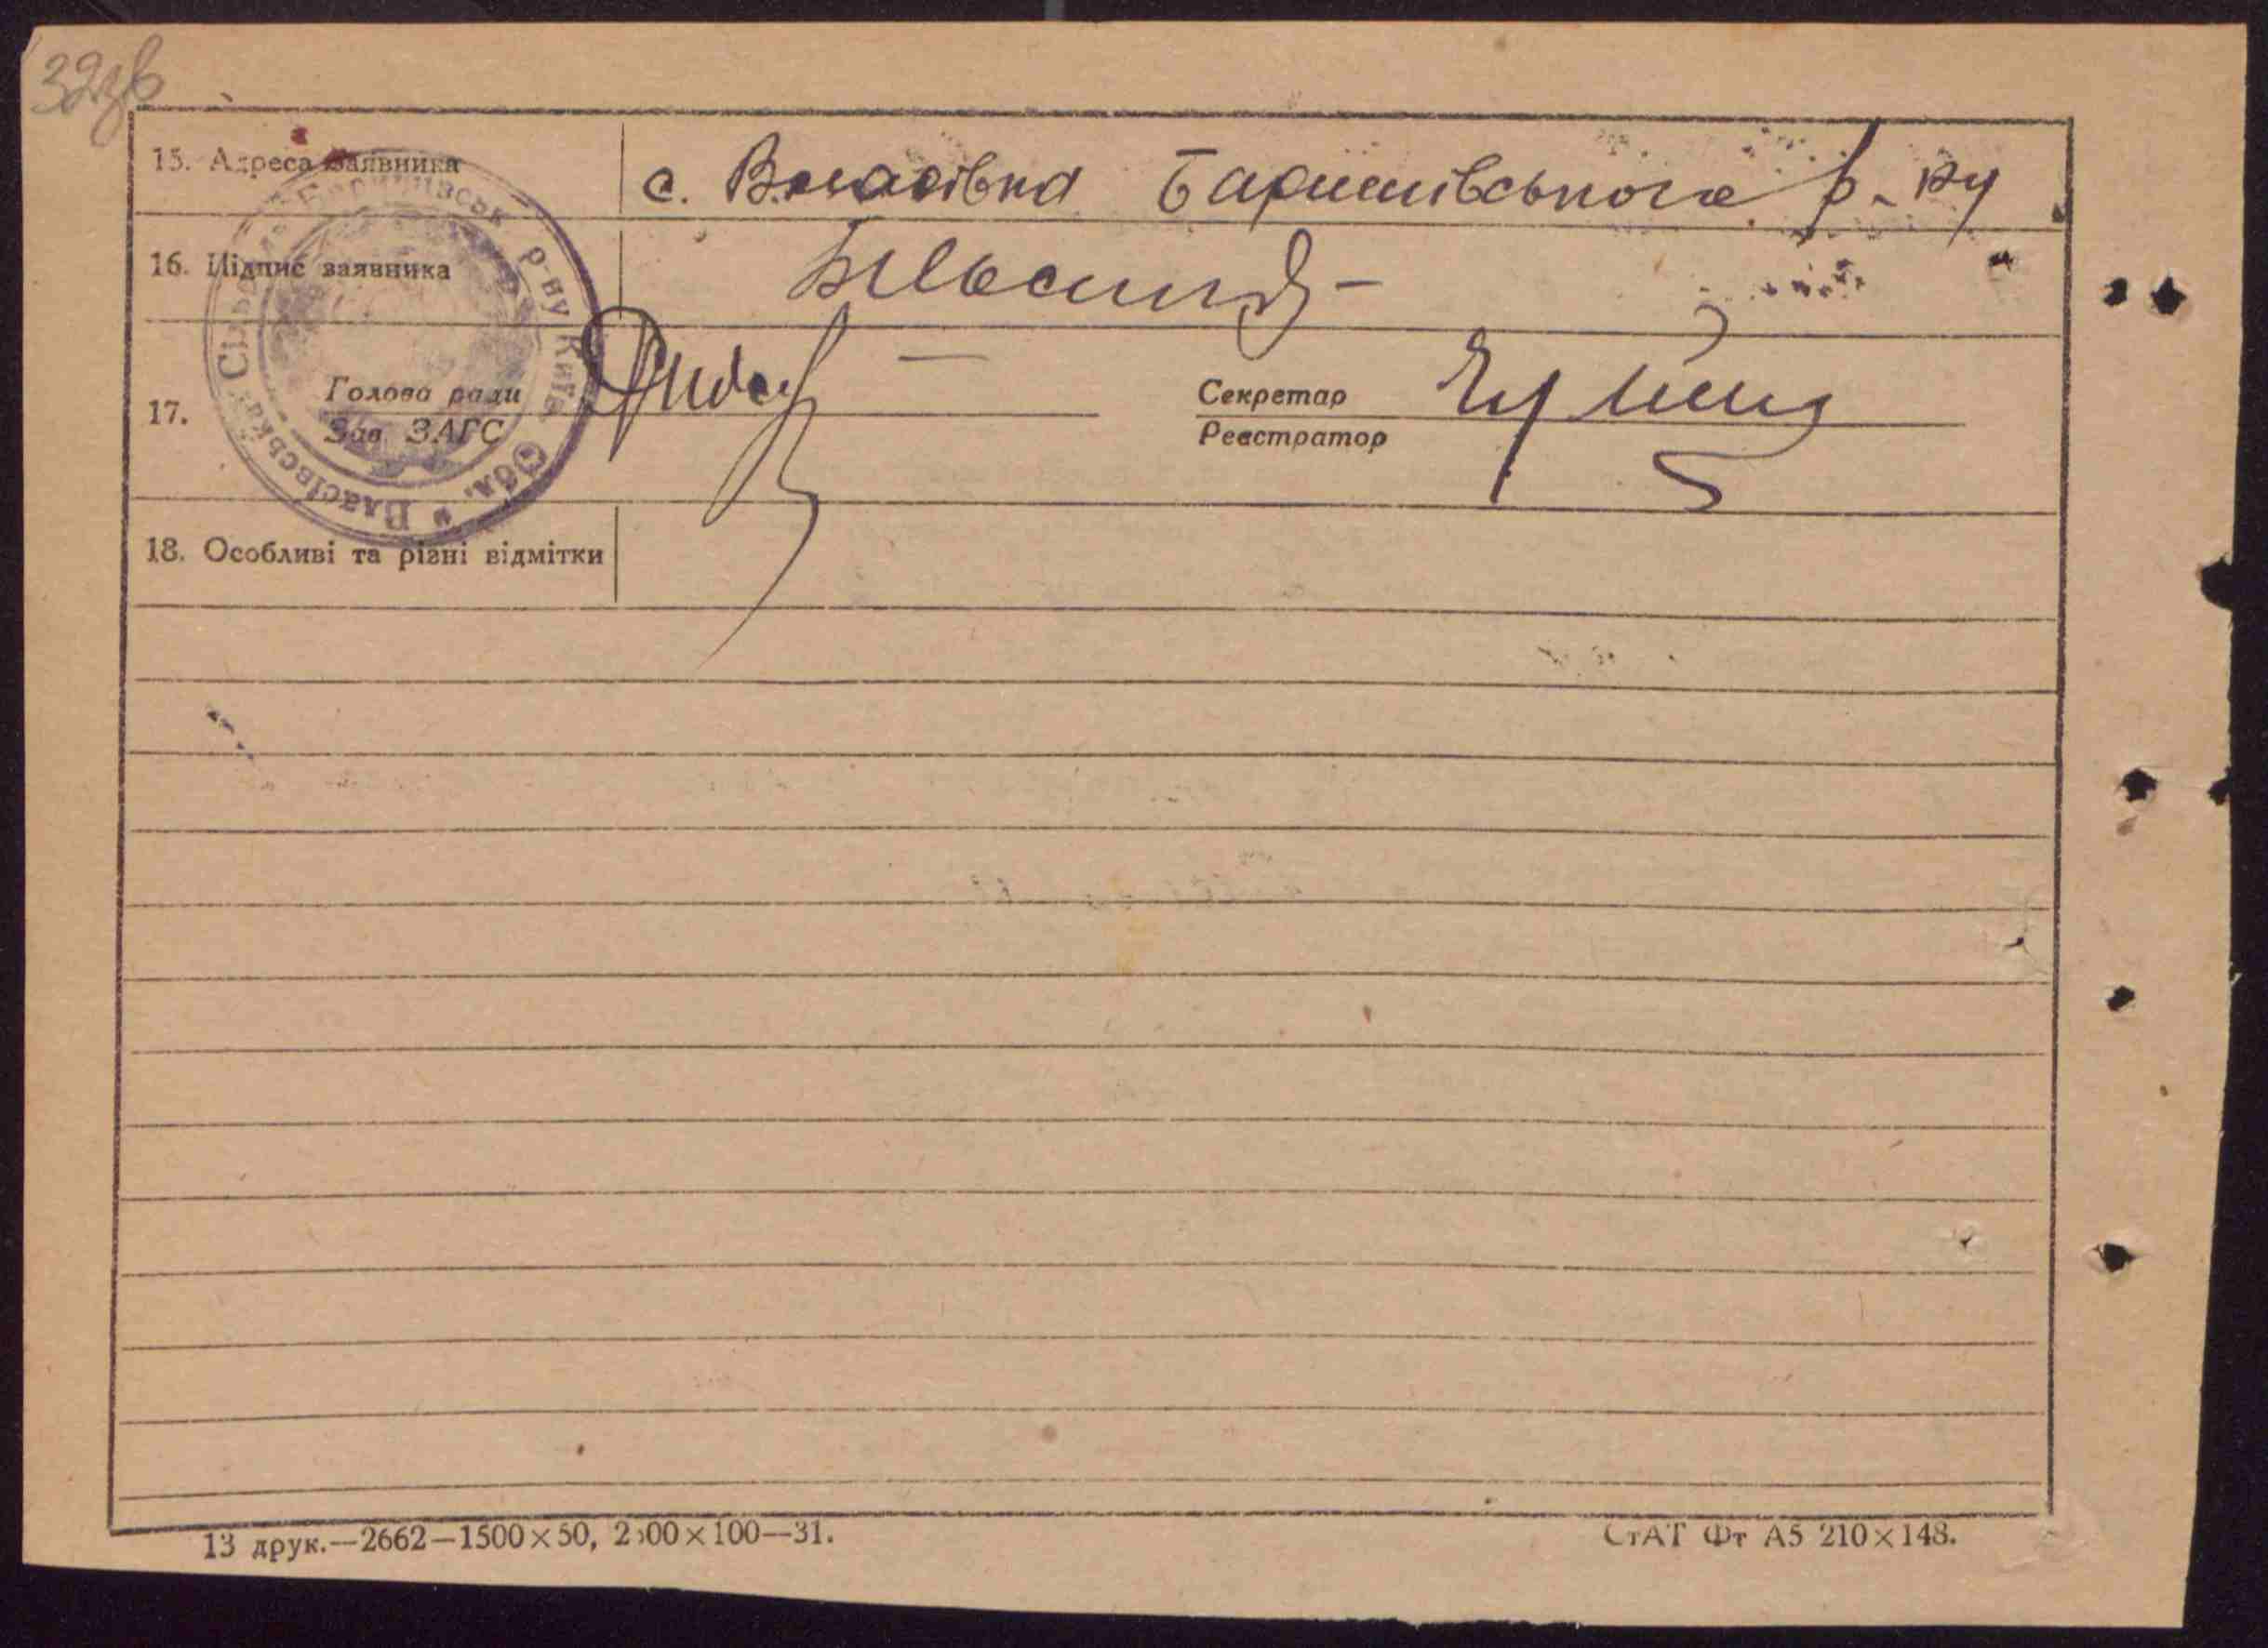 32зв
15. Адреса заявника
с. Власівка Баришівського р-ну
16. Підпис заявника
17. Голова ради
Зав. ЗАГС
Секретар
Реєстратор
Власівська Сільрада Баришівськ р-ну Київ. Обл.
18. Особливі та різні відмітки
13 друк.—2662—1500×50, 2500×100—31.
СтАТ Фт А5 210×148.